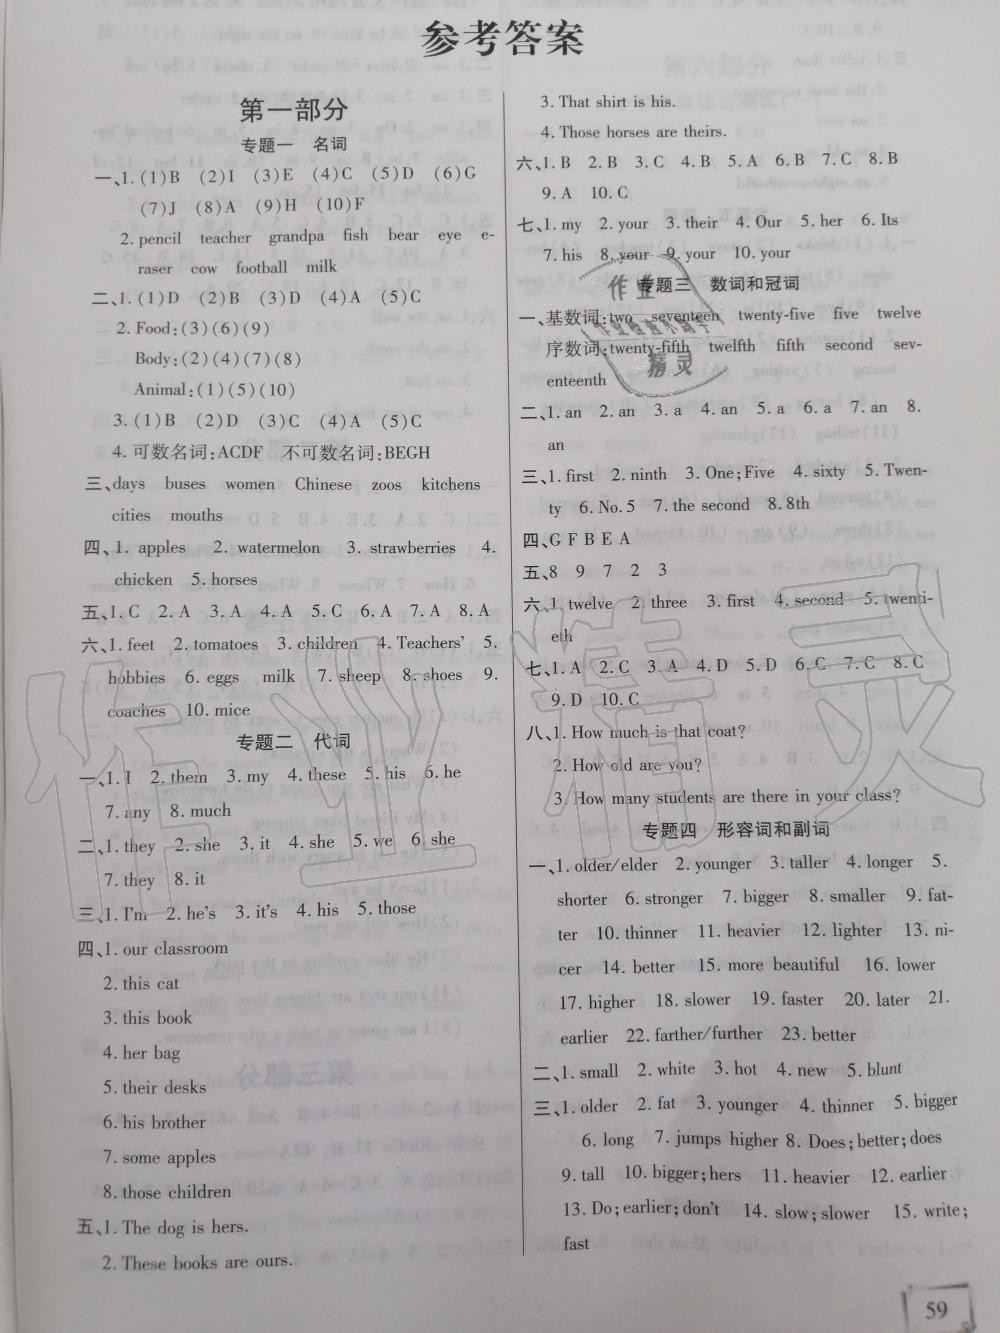 参考答案
第一部分
专题一 名词
一、1.(1)B (2)I (3)E (4)C (5)D (6)G
(7)J (8)A (9)H (10)F
2. pencil teacher grandpa fish bear eye e-
raser cow football milk
二、1.(1)D (2)B (3)D (4)A (5)C
2. Food:(3)(6)(9)
Body:(2)(4)(7)(8)
Animal:(1)(5)(10)
3.(1)B (2)D (3)C (4)A (5)C
4. 可数名词:ACDF 不可数名词:BEGH
三、days buses women Chinese zoos kitchens
cities mouths
四、1. apples 2. watermelon 3. strawberries 4.
chicken 5. horses
五、1. C 2. A 3. A 4. A 5. C 6. A 7. A 8. A
六、1. feet 2. tomatoes 3. children 4. Teachers' 5.
hobbies 6. eggs milk 7. sheep 8. shoes 9.
coaches 10. mice
专题二 代词
一、1. I 2. them 3. my 4. these 5. his 6. he
7. any 8. much
二、1. they 2. she 3. it 4. she 5. we 6. she
7. they 8. it
三、1. I'm 2. he's 3. it's 4. his 5. those
四、1. our classroom
2. this cat
3. this book
4. her bag
5. their desks
6. his brother
7. some apples
8. those children
五、1. The dog is hers.
2. These books are ours.
3. That shirt is his.
4. Those horses are theirs.
六、1. B 2. B 3. C 4. B 5. A 6. B 7. C 8. B
9. A 10. C
七、1. my 2. your 3. their 4. Our 5. her 6. Its
7. his 8. your 9. your 10. your
专题三 数词和冠词
一、基数词:two seventeen twenty-five five twelve
序数词:twenty-fifth twelfth fifth second sev-
enteenth
二、1. an 2. an 3. a 4. an 5. a 6. a 7. an 8.
an
三、1. first 2. ninth 3. One;Five 4. sixty 5. Twen-
ty 6. No. 5 7. the second 8. 8th
四、G F B E A
五、8 9 7 2 3
六、1. twelve 2. three 3. first 4. second 5. twenti-
eth
七、1. A 2. C 3. A 4. D 5. D 6. C 7. C 8. C
9. D 10. C
八、1. How much is that coat?
2. How old are you?
3. How many students are there in your class?
专题四 形容词和副词
一、1. older/elder 2. younger 3. taller 4. longer 5.
shorter 6. stronger 7. bigger 8. smaller 9. fat-
ter 10. thinner 11. heavier 12. lighter 13. ni-
cer 14. better 15. more beautiful 16. lower
17. higher 18. slower 19. faster 20. later 21.
earlier 22. farther/further 23. better
二、1. small 2. white 3. hot 4. new 5. blunt
三、1. older 2. fat 3. younger 4. thinner 5. bigger
6. long 7. jumps higher 8. Does;better;does
9. tall 10. bigger;hers 11. heavier 12. earlier
13. Do;earlier;don't 14. slow;slower 15. write;
fast
59